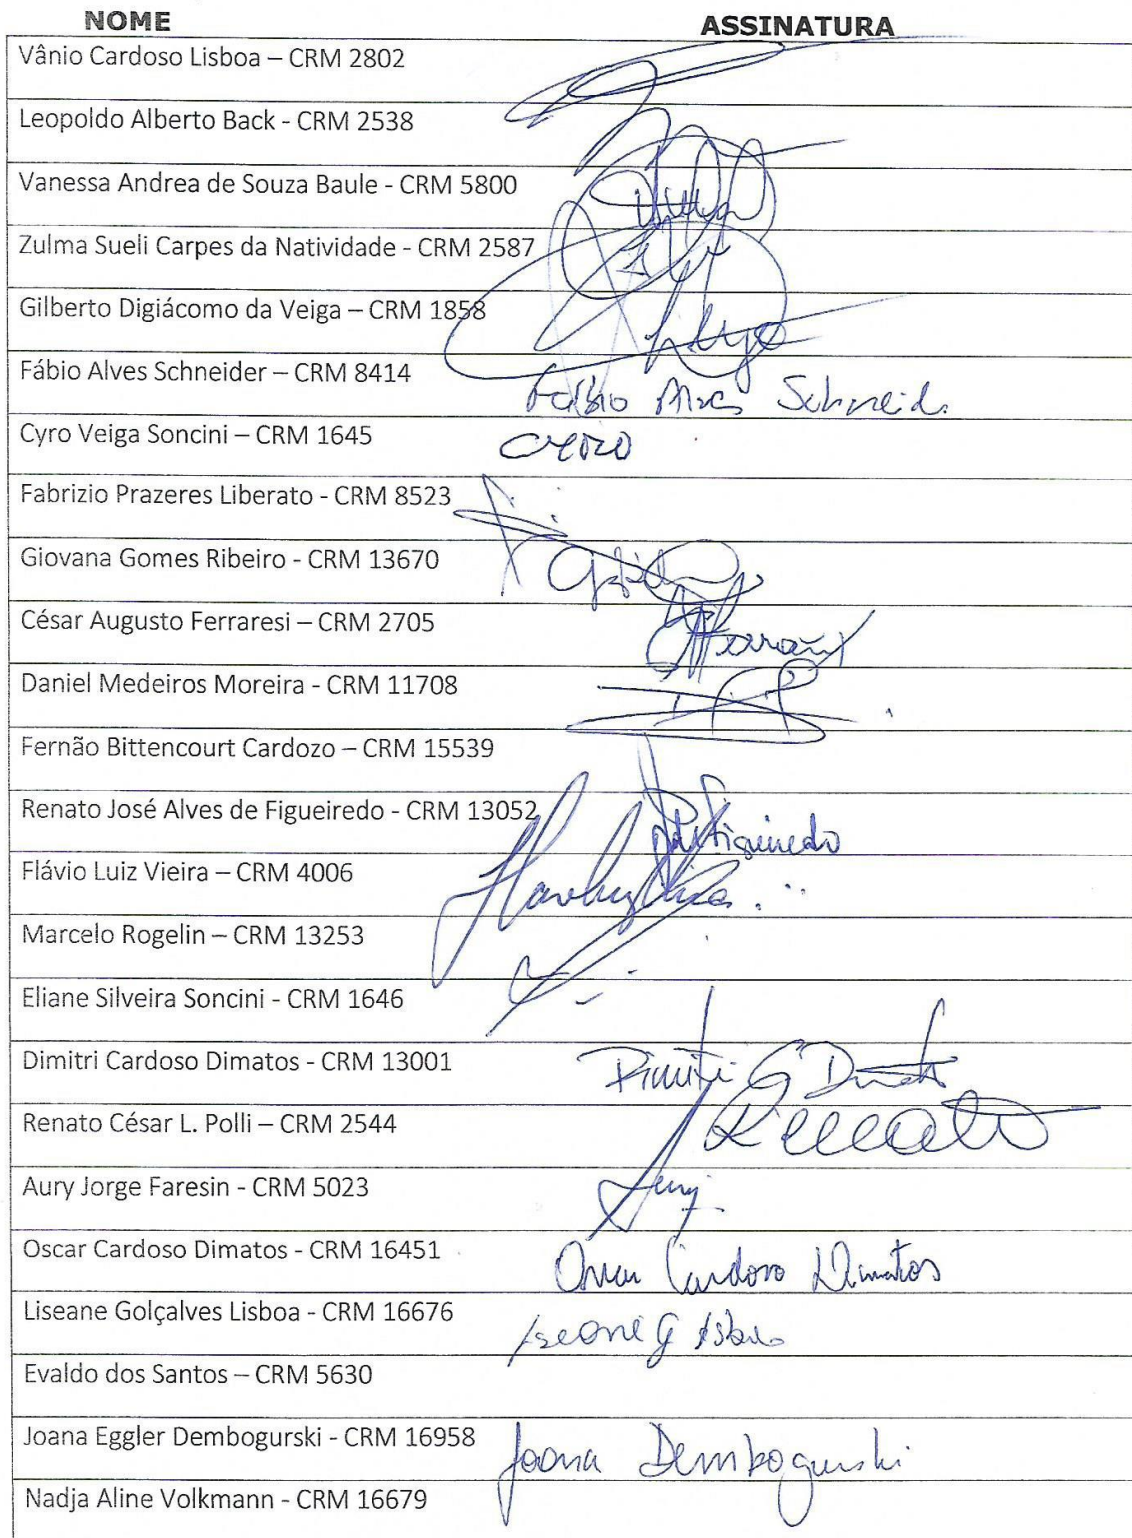 NOME ASSINATURA
Vânio Cardoso Lisboa – CRM 2802
Leopoldo Alberto Back - CRM 2538
Vanessa Andrea de Souza Baule - CRM 5800
Zulma Sueli Carpes da Natividade - CRM 2587
Gilberto Digiácomo da Veiga – CRM 1858
Fábio Alves Schneider – CRM 8414
Cyro Veiga Soncini – CRM 1645
Fabrizio Prazeres Liberato - CRM 8523
Giovana Gomes Ribeiro - CRM 13670
César Augusto Ferraresi – CRM 2705
Daniel Medeiros Moreira - CRM 11708
Fernão Bittencourt Cardozo – CRM 15539
Renato José Alves de Figueiredo - CRM 13052 Figueiredo
Flávio Luiz Vieira – CRM 4006
Marcelo Rogelin – CRM 13253
Eliane Silveira Soncini - CRM 1646
Dimitri Cardoso Dimatos - CRM 13001 Dimitri
Renato César L. Polli – CRM 2544 Renato
Aury Jorge Faresin - CRM 5023 Aury
Oscar Cardoso Dimatos - CRM 16451 Oscar Cardoso Dimatos
Liseane Golçalves Lisboa - CRM 16676
Evaldo dos Santos – CRM 5630
Joana Eggler Dembogurski - CRM 16958 Joana Dembogurski
Nadja Aline Volkmann - CRM 16679